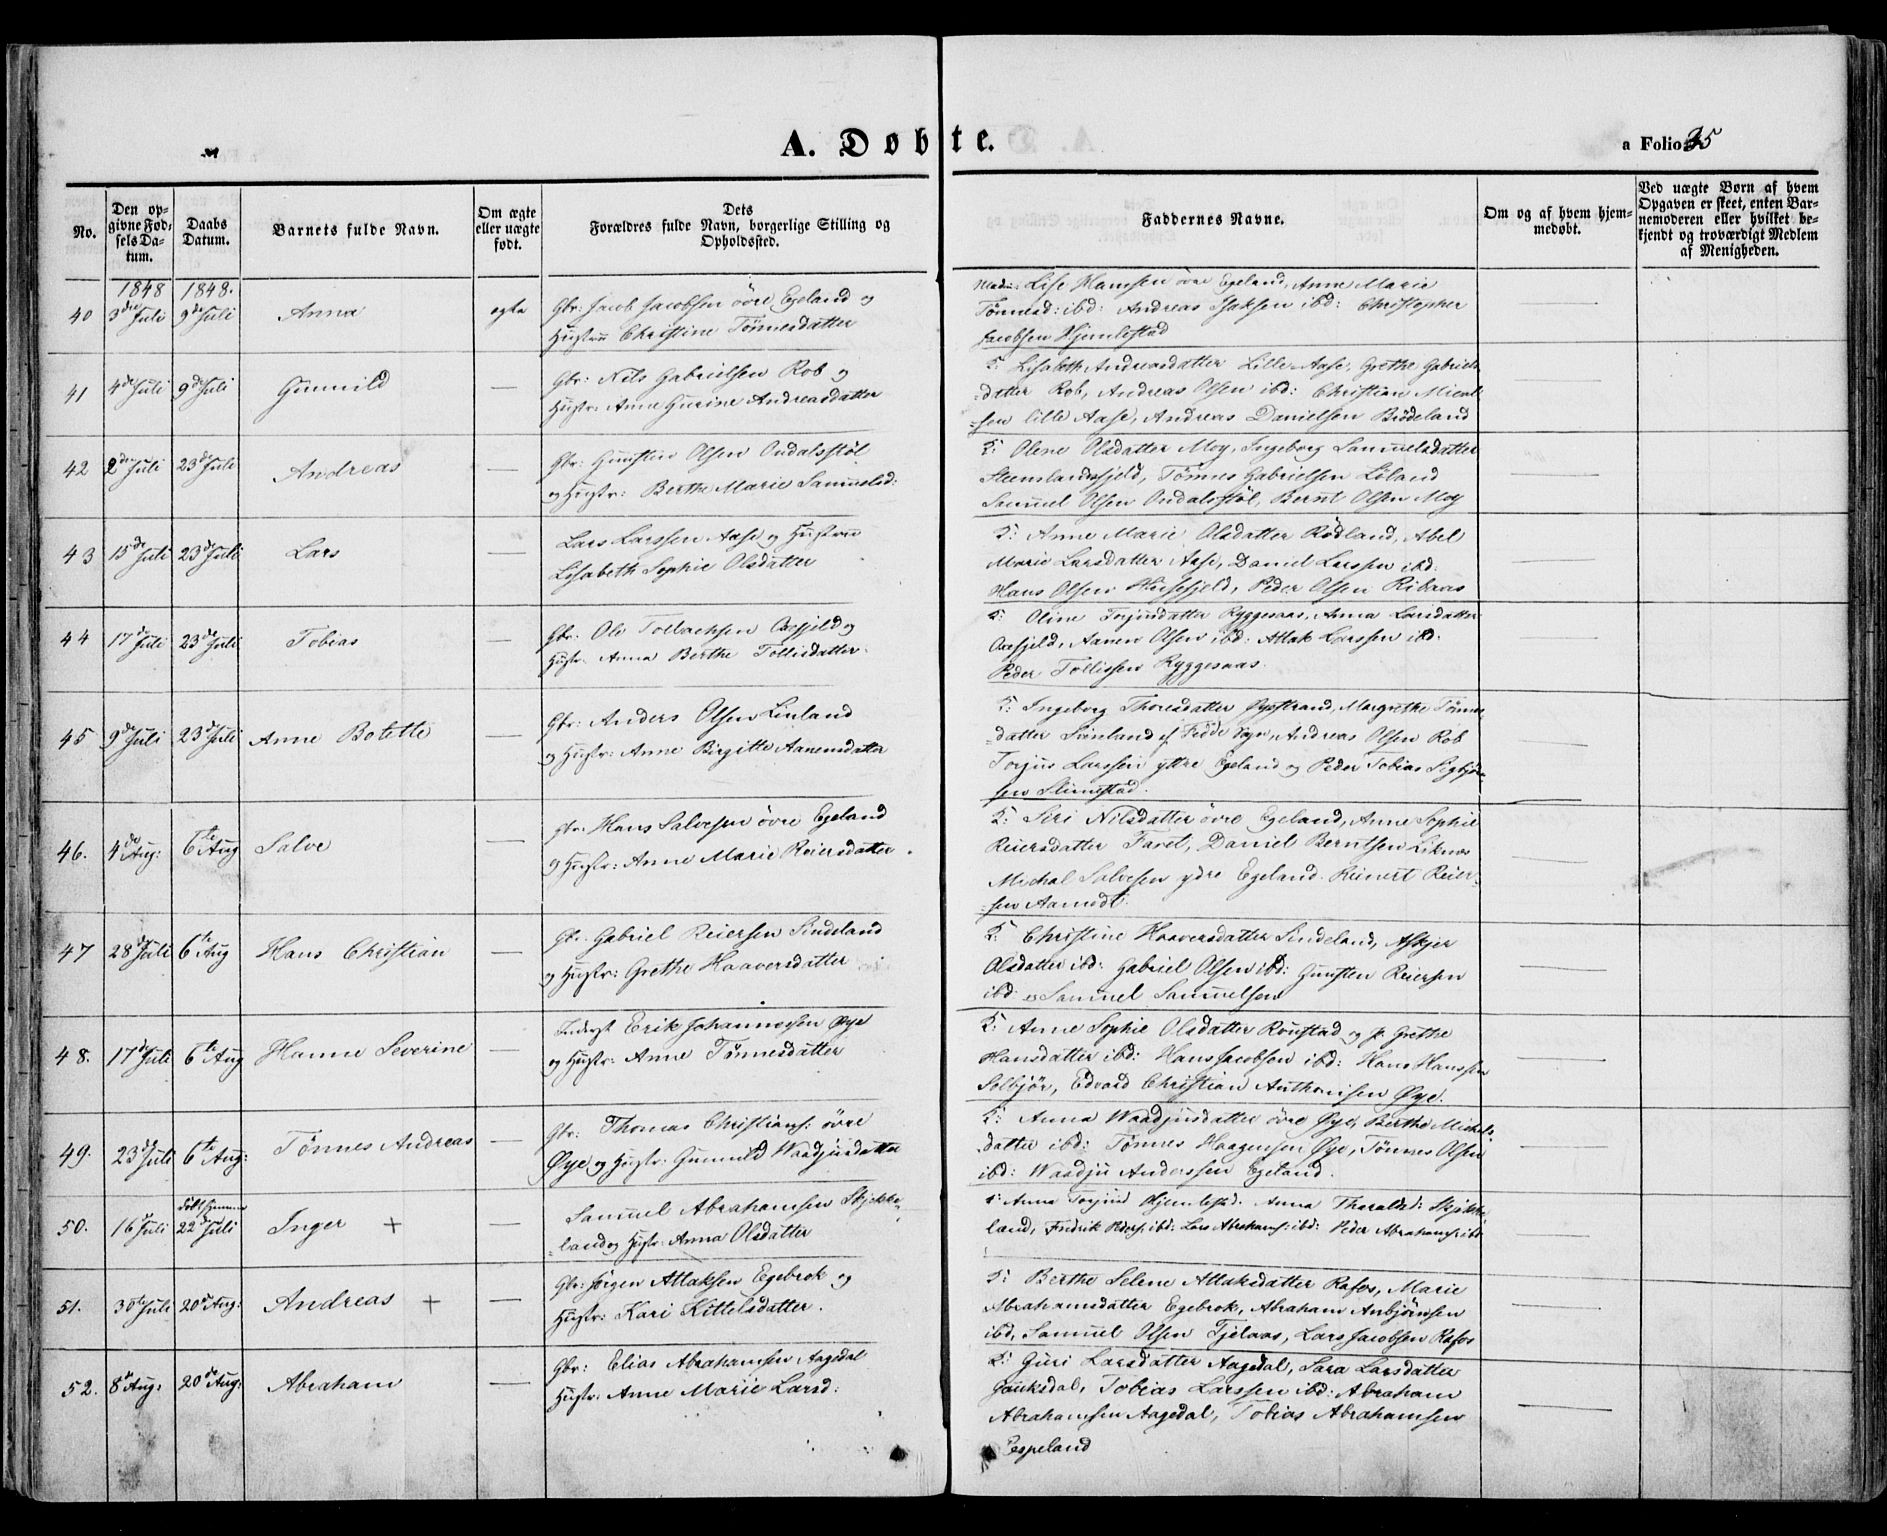 A. Døbte.
a Folio 35
No.
Den op-
givne Fød-
sels Da-
tum.
Daabs
Datum.
Barnets fulde Navn.
Om ægte
eller uægte
født.
Dets
Forældres fulde Navn, borgerlige Stilling og
Opholdssted.
Faddernes Navne.
Om og af hvem hjem-
medøbt.
Ved uægte Børn af hvem
Opgaven er skeet, enten Bar-
nemoderen eller hvilket be-
kjendt og troværdigt Medlem
af Menigheden.
1848 1848.
40 3die Juli 9de Juli Anna ægte
Gbr: Jacob Jacobsen övre Egeland og
Hustru Christine Tönnesdatter
Lise Hansen övre Egeland, Anne Marie
Tönnesd: ibd: Andreas Isaksen ibd: Christopher
Jacobsen Hjemlestad
41 4de Juli 9de Juli Gunnild —
Gbr: Nils Gabrielsen Rob og
Hustr: Anne Gurine Andreasdatter
F: Lisabeth Andreasdatter Lille Aase, Grethe Gabriels
datter Rob, Andreas Olsen ibd: Christian Mical-
sen lille Aase, Andreas Danielsen Brödeland
42 2den Juli 23de Juli Andreas —
Gbr: Gunsten Olsen Ondalsstöl
og Hustr: Berthe Marie Samuelsd:
F: Olene Olsdatter Moy, Ingeborg Samuelsdatter
Steenslandsfjeld, Tönnes Gabrielsen Löland
Samuel Olsen Ondalsstöl, Bernt Olsen Moy
43 15de Juli 23de Juli Lars —
Lars Larssen Aase og Hustru
Lisabeth Sophie Olsdatter
F: Anne Marie Olsdatter Rödland, Abel
Marie Larsdatter Aase, Daniel Larssen ibd:
Hans Olsen Husefjeld, Peder Olsen Ribaas
44 17de Juli 23de Juli Tobias —
Gbr: Ole Tollachsen Oxefjeld og
Hustr: Anna Berthe Tollisdatter
F: Oline Torjusdatter Ryggesaas, Anna Larsdatter
Oxefjeld, Aanen Olsen ibd: Atlak Larssen ibd:
Peder Tollissen Ryggesaas.
45 9de Juli 23de Juli Anne Bolette —
Gbr: Anders Olsen Linland
og Hustr: Anne Birgitte Aanensdatter
F: Ingeborg Thoresdatter Öyestrand, Margrethe Tönnes
datter Svinland af Fedde Sogn, Andreas Olsen Rob
Torjus Larssen yttre Egeland og Peder Tobias Sigbjörn-
sen Slimestad.
46. 4de Aug: 6te Aug Salve —
Gbr: Hans Salvesen övre Egeland
og Hustr: Anne Marie Reiersdatter.
F: Siri Nilsdatter övre Egeland, Anne Sophie
Reiersdatter Faret, Daniel Berntsen Liknæs
Michal Salvesen ydre Egeland. Reinert Reier-
sen Aamodt.
47 28de Juli 6te Aug Hans Christian —
Gbr. Gabriel Reiersen Sindeland
og Hustr: Grethe Haaversdatter
F: Christine Haaversdatter Sindeland, Askjer
Olsdatter ibd: Gabriel Olsen ibd: Gunsten Reiersen
ibd og Samuel Samuelsen
48. 17de Juli 6te Aug Hanne Severine —
Inderst Erik Johannessen Øye
og Hustr: Anne Tönnesdatter
F: Anne Sophie Olsdatter Ronstad og Grethe
Hansdatter ibd: Hans Jacobsen ibd: Hans Hanssen
Solbjör, Edvard Christian Anthonisen Øye.
49. 23de Juli 6te Aug: Tönnes Andreas —
Gbr: Thomas Christians: övre
Øye og Hustr: Gunnild Waadjusdatter
F: Anna Waadjusdatter övre Øye, Berthe Michels
datter ibd: Tönnes Haagensen Øye, Tönnes Olsen
ibd: Waadju Anderssen Egeland.
50. 16de Juli 22de Juli Inger + —
Samuel Abrahamsen Skjekke-
land og Hustr: Anna Olsdatter
F: Anna Torjusd Hjemlestad. Anna Tharaldsd: Skjekke
land, Fredrik Peders: ibd: Lars Abrahams: ibd: Peder Abrahams: ibd
51. 30te Juli 20de Aug: Andreas + —
Gbr: Jörgen Atlaksen Egebrok og
Hustr: Kari Kittelsdatter.
F: Berthe Selene Atlaksdatter Rafos, Marie
Abrahamsdatter Egebrok, Abraham Anbjörnsen
ibd, Samuel Olsen Fjelaas, Lars Jacobsen Rafos
52. 8de Aug: 20de Aug: Abraham —
Gbr: Elias Abrahamsen Aagedal
Hustr: Anne Marie Larsd:
F: Guri Larsdatter Aagedal, Sara Larsdatter
Gauksdal, Tobias Larssen ibd: Abraham
Abrahamsen Aagedal, Tobias Abrahamsen
Espeland